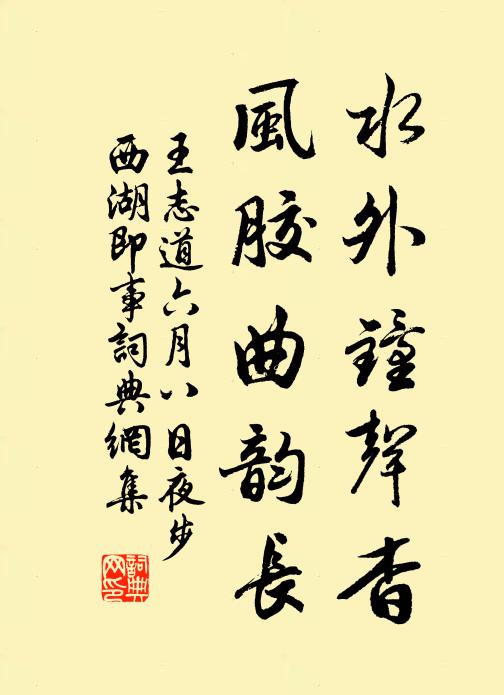 水外鐘聲杳
風胶曲韵長
王志道六月八日夜步
西湖即事詞典網集
詞典
网印